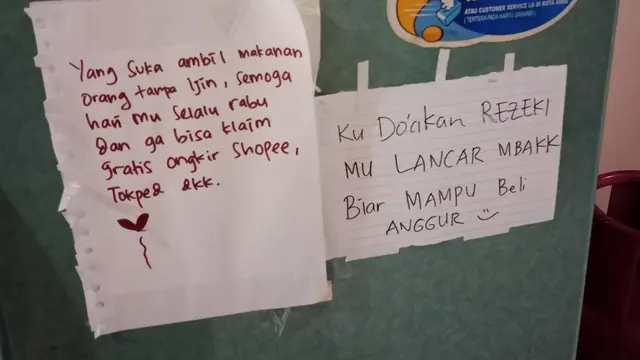 Yang suka ambil makanan
orang tanpa ijin, semoga
hari mu selalu rabu
dan ga bisa klaim
gratis ongkir shopee,
Tokped dkk.
ATAU CUSTOMER SERVICE LG DI KOTA ANDA
( TERTERA PADA KARTU GARANSI )
Ku Do'akan REZEKI
MU LANCAR MBAKK
Biar MAMPU Beli
ANGGUR